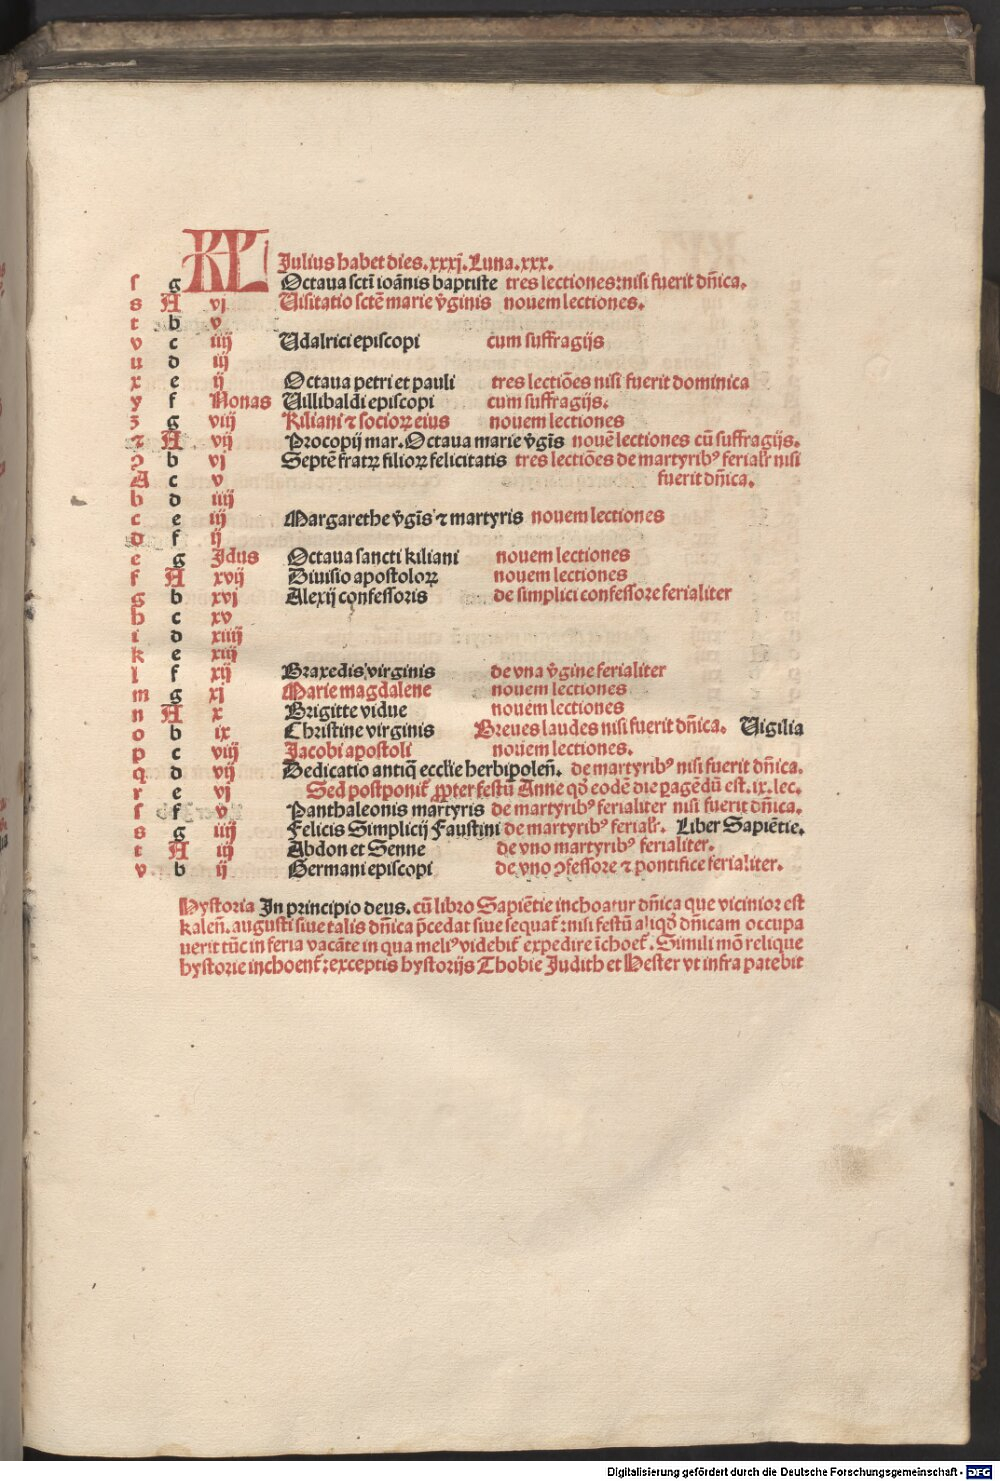 KL Julius habet dies.xxxj.Luna.xxx.
ſ g Octaua sctī ioānis baptiste tres lectiones:nisi fuerit dn̄ica.
s A vj Uisitatio sctē marie v̄ginis nouem lectiones.
t b v
v c iiij Udalrici episcopi cum suffragijs
u d iij
x e ij Octaua petri et pauli tres lectiōes nisi fuerit dominica
y f Nonas Uillibaldi episcopi cum suffragijs.
z g viij Kiliani ⁊ socioꝝ eius nouem lectiones
⁊ A vij Procopij mar.Octaua marie v̄gīs nouē lectiones cū suffragijs.
ꝯ b vj Septē fratꝝ filioꝝ felicitatis tres lectiōes de martyribꝰ ferialr̄ nisi
A c v fuerit dn̄ica.
b d iiij
c e iij Margarethe v̄gīs ⁊ martyris nouem lectiones
d f ij
e g Jdus Octaua sancti kiliani nouem lectiones
f A xvij Diuisio apostoloꝝ nouem lectiones
g b xvj Alexij confessoris de simplici confessore ferialiter
h c xv
i d xiiij
k e xiij
l f xij Braxedis virginis de vna v̄gine ferialiter
m g xj Marie magdalene nouem lectiones
n A x Brigitte vidue nouem lectiones
o b ix Christine virginis Breues laudes nisi fuerit dn̄ica. Uigilia
p c viij Jacobi apostoli nouem lectiones.
q d vij Dedicatio antiq̄ eccl̄ie herbipoleñ. de martyribꝰ nisi fuerit dn̄ica.
r e vj Sed postponit̄ ꝓpter festū Anne qd̄ eodē die pagēdū est.ix.lec.
ſ f v Panthaleonis martyris de martyribꝰ ferialiter nisi fuerit dn̄ica.
s g iiij Felicis Simplicij Faustini de martyribꝰ ferialr̄. Liber Sapiētie.
t A iij Abdon et Senne de vno martyribꝰ ferialiter.
v b ij Germani episcopi de vno ꝯfessore ⁊ pontifice ferialiter.
Hystoria In principio deus. cū libro Sapiētie inchoatur dn̄ica que vicinior est
kaleñ. augusti siue talis dn̄ica p̄cedat siue sequat̄:nisi festū aliqd̄ dn̄icam occupa
uerit tūc in feria vacāte in qua meliꝰ videbit̄ expedire īchoet̄. Simili mō relique
hystorie inchoent̄:exceptis hystorijs Thobie Judith et Hester vt infra patebit
Digitalisierung gefördert durch die Deutsche Forschungsgemeinschaft - DFG